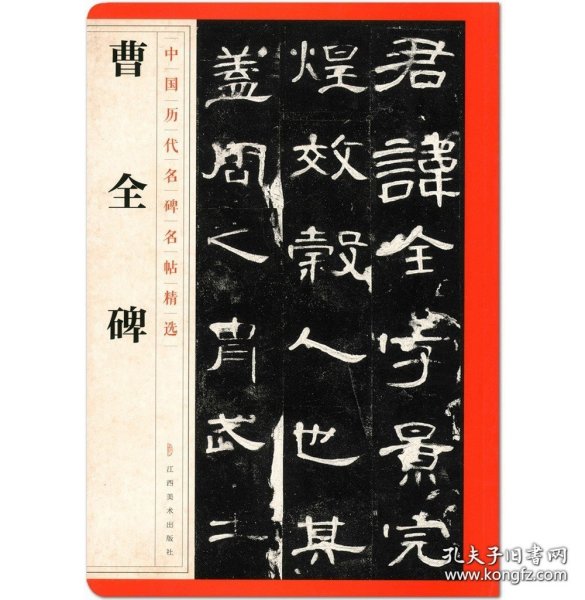 曹全碑
中国历代名碑名帖精选
江西美术出版社
君諱全字景完
煌效穀人也其
蓋周之胄武王
孔夫子旧书网
www.kongfz.com